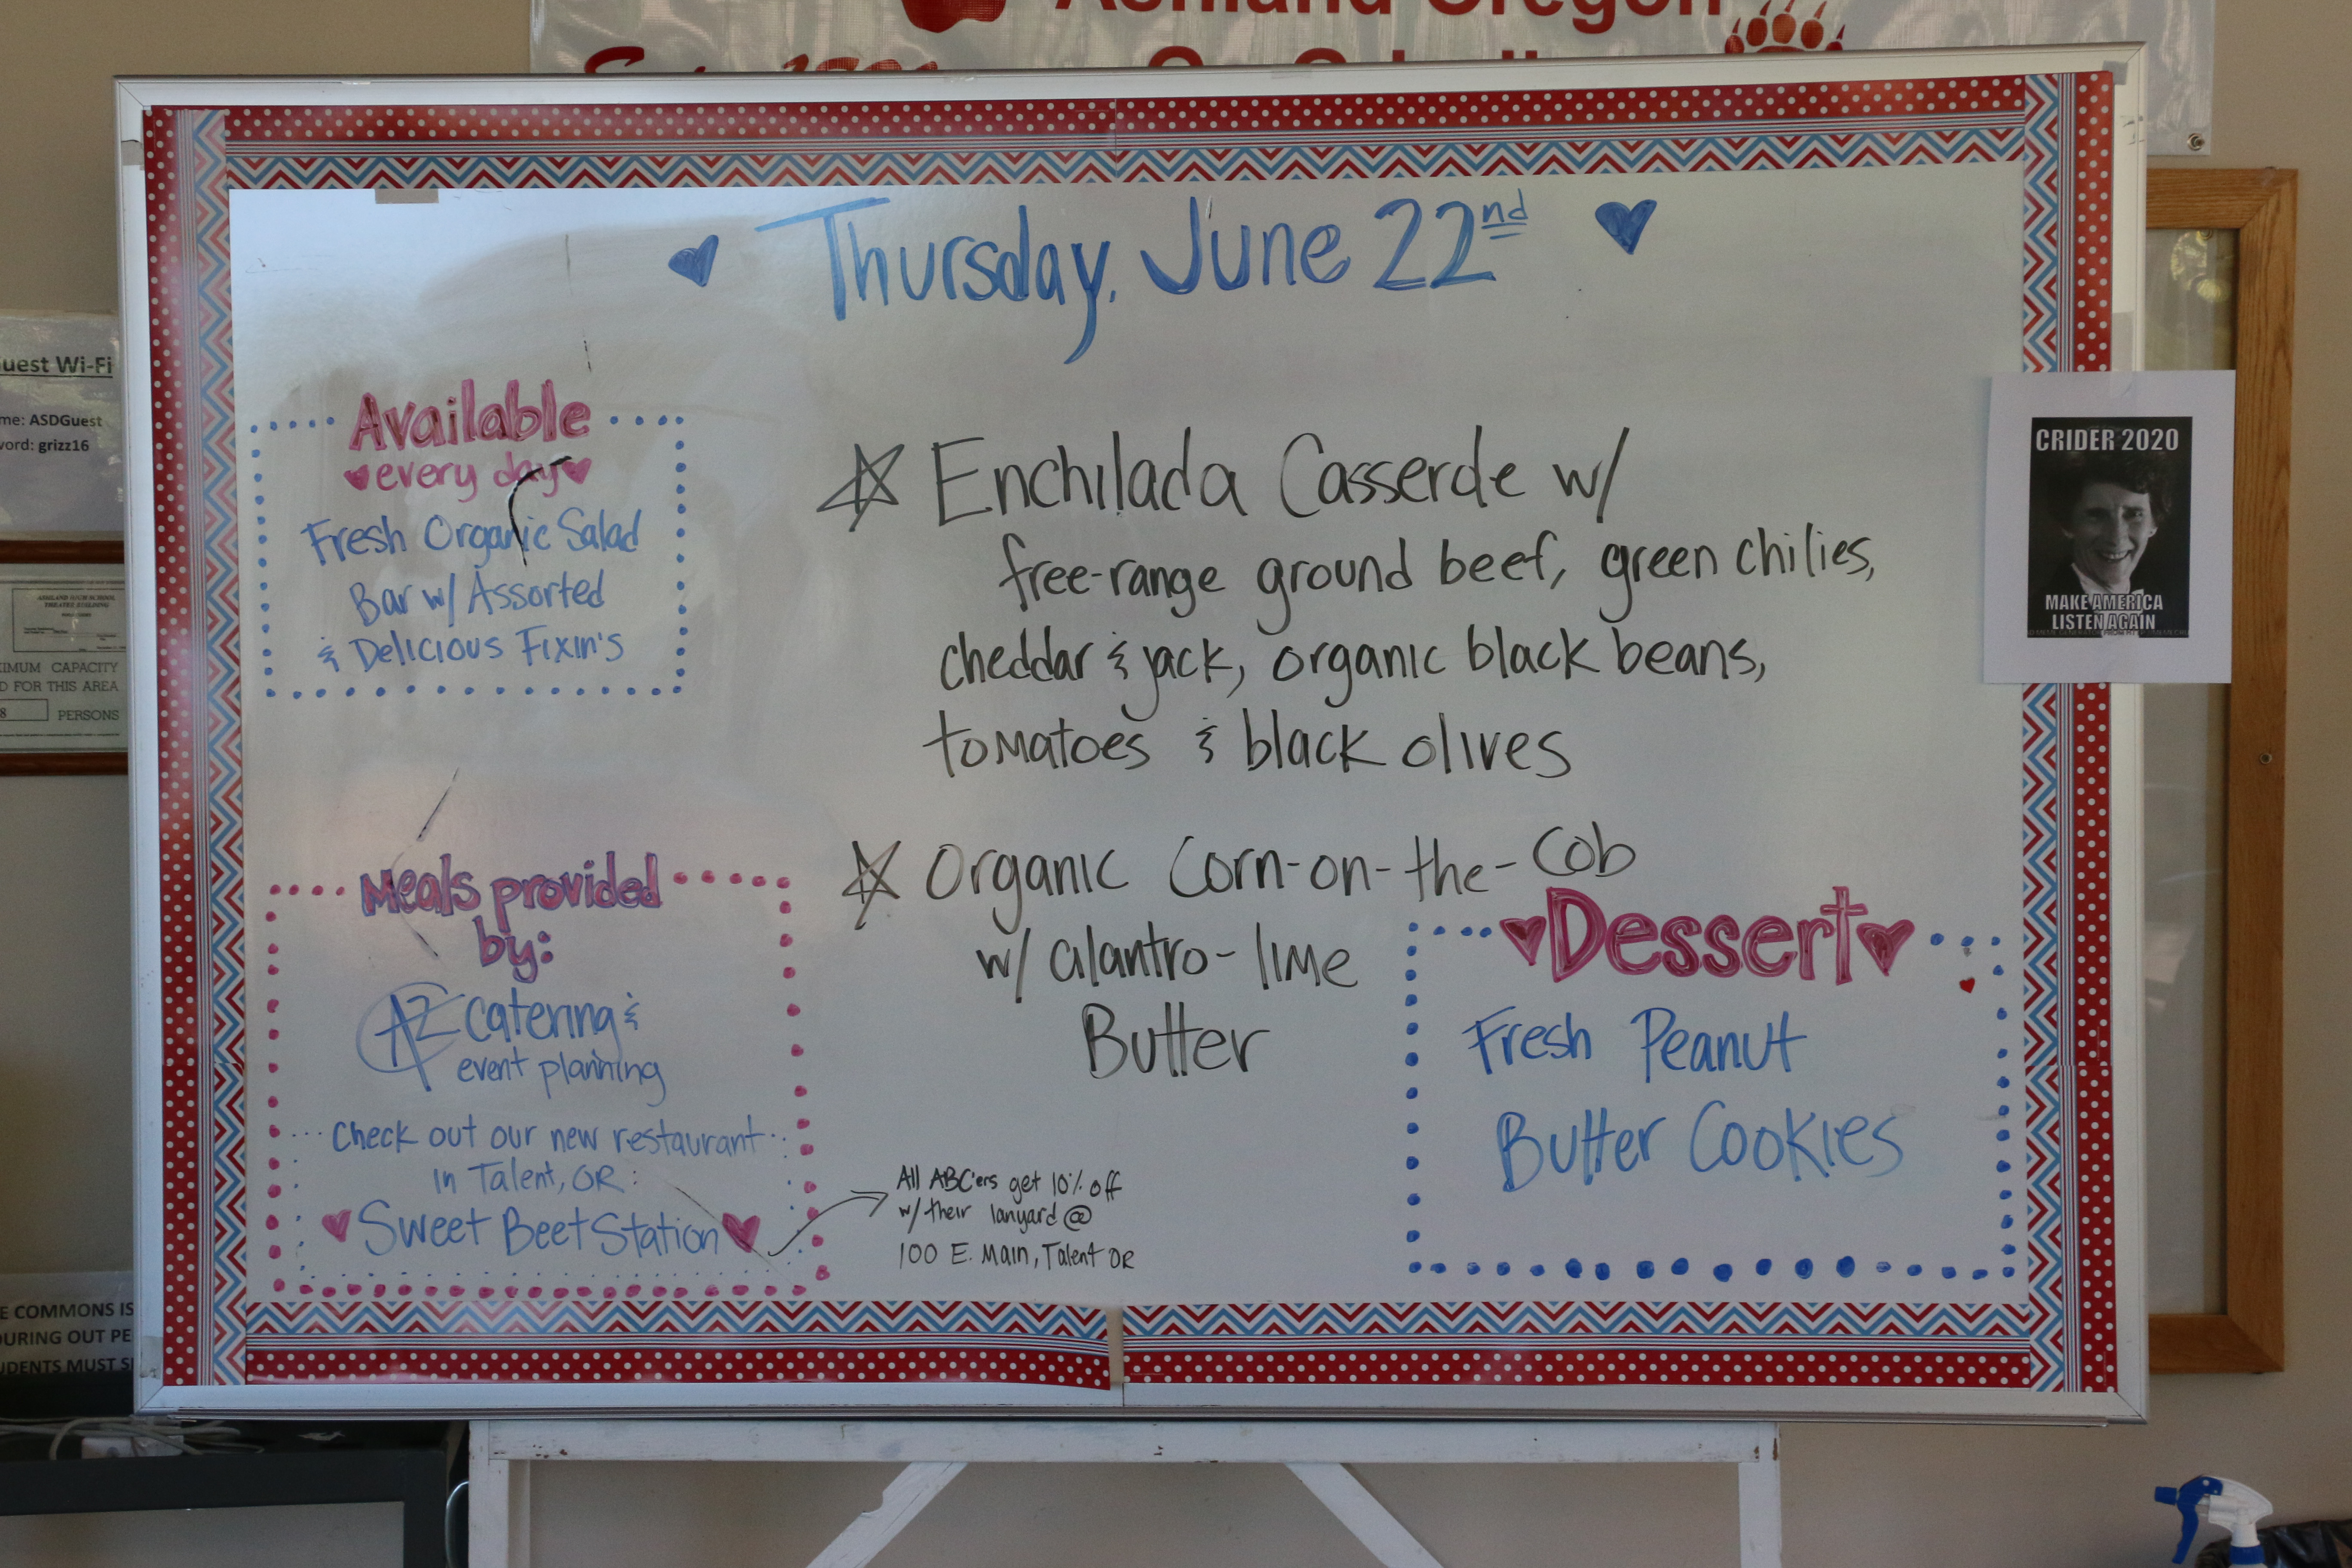 Ashland Oregon
Thursday, June 22nd
Available
every day
Fresh Organic Salad
Bar w/ Assorted
& Delicious Fixin's
Enchilada Casserole w/
free-range ground beef, green chilies,
cheddar & jack, organic black beans,
tomatoes & black olives
Organic Corn-on-the-Cob
w/ cilantro-lime
Butter
Meals provided
by:
AZ Catering &
event planning
Check out our new restaurant
in Talent, OR:
Sweet Beet Station
All ABC'ers get 10% off
w/ their lanyard @
100 E. Main, Talent OR
Dessert
Fresh Peanut
Butter Cookies
CRIDER 2020
MAKE AMERICA
LISTEN AGAIN
uest Wi-Fi
me: ASDGuest
word: grizz16
ASHLAND HIGH SCHOOL
THEATRE BUILDING
XIMUM CAPACITY
D FOR THIS AREA
8 PERSONS
E COMMONS IS
DURING OUT PE
UDENTS MUST S